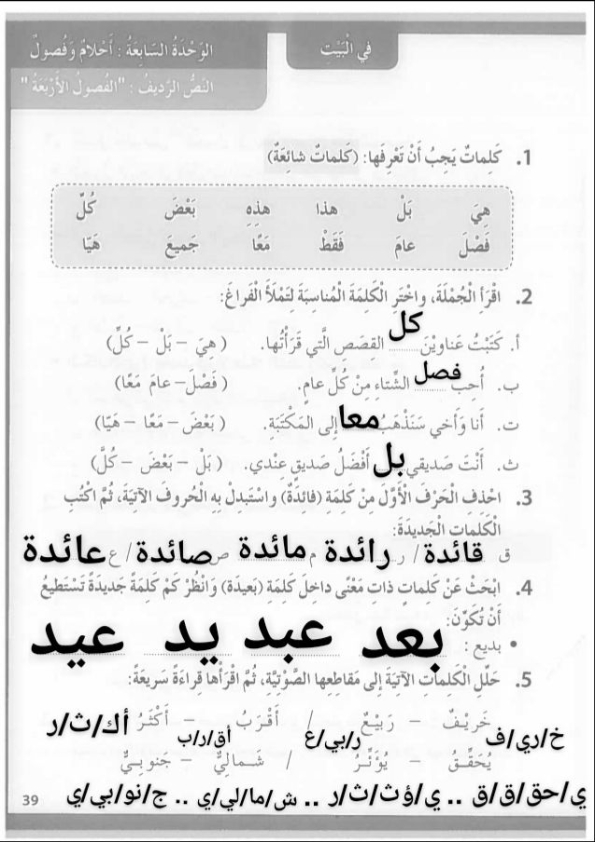 في الْبَيْت
الوَحْدَةُ السّابِعَةُ : أَحْلامٌ وَفُصولٌ
النَّصُّ الرَّديفُ : "الفُصولُ الأَرْبَعَةُ"
1. كَلِماتٌ يَجِبُ أَنْ تَعْرِفَها: (كَلِماتٌ شائِعَةٌ)
هِيَ بَلْ هذا هذِهِ بَعْضَ كُلّ
فَصْلَ عامَ فَقَطْ مَعًا جَميعَ هَيّا
2. اقْرَأِ الْجُمْلَةَ، واخْتَرِ الْكَلِمَةَ الْمُناسِبَةَ لِتَمْلَأَ الْفَراغَ:
أ. كَتَبْتُ عَناوِيْنَ كل القِصَصِ الَّتي قَرَأْتُها. (هِيَ – بَلْ – كُلِّ)
ب. أُحِبُّ فصل الشِّتاءِ مِنْ كُلِّ عامٍ. (فَصْلَ – عامَ مَعًا)
ت. أَنا وَأَخي سَنَذْهَبُ معا إِلى المَكْتَبَةِ. (بَعْضَ – مَعًا – هَيّا)
ث. أَنْتَ صَديقي بل أَفْضَلُ صَديقٍ عِنْدي. (بَلْ – بَعْضَ – كُلَّ)
3. احْذِفِ الْحَرْفَ الْأَوَّلَ مِنْ كَلِمَةِ (فائِدَةٌ) واسْتَبْدِلْ بِهِ الْحُروفَ الآتِيَةَ، ثُمَّ اكْتُبِ
الْكَلِماتِ الْجَديدَةَ:
ق قائدة / ر رائدة م مائدة ص صائدة / ع عائدة
4. ابْحَثْ عَنْ كَلِماتٍ ذاتِ مَعْنًى داخِلَ كَلِمَةِ (بَعيدَة) وَانْظُرْ كَمْ كَلِمَةً جَديدَةً تَسْتَطيعُ
أَنْ تُكَوِّنَ:
• بديع : بعد عبد يد عيد
5. حَلِّلِ الْكَلِماتِ الآتِيَةَ إِلى مَقاطِعِها الصَّوْتِيَّةِ، ثُمَّ اقْرَأْها قِراءَةً سَريعَةً:
خَريْفٌ – رَبيْعٌ / أَقْرَبُ – أَكْثَرُ
خ/ري/ف ر/بي/ع أق/ر/ب أك/ث/ر
يُحَقِّقُ – يُؤَثِّرُ / شَماليٌّ – جَنوبيٌّ
ي/حق/ق/ق .. ي/ؤث/ث/ر .. ش/ما/لي/ي .. ج/نو/بي/ي
39